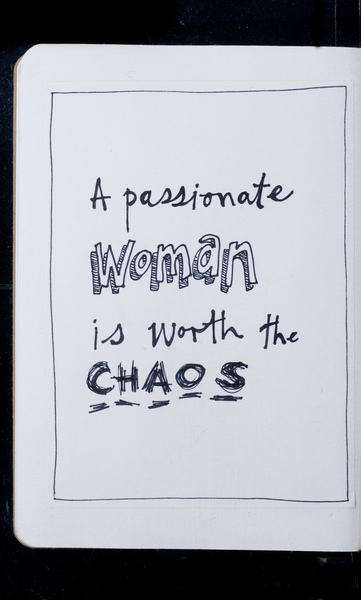 A passionate
Woman
is worth the
CHAOS